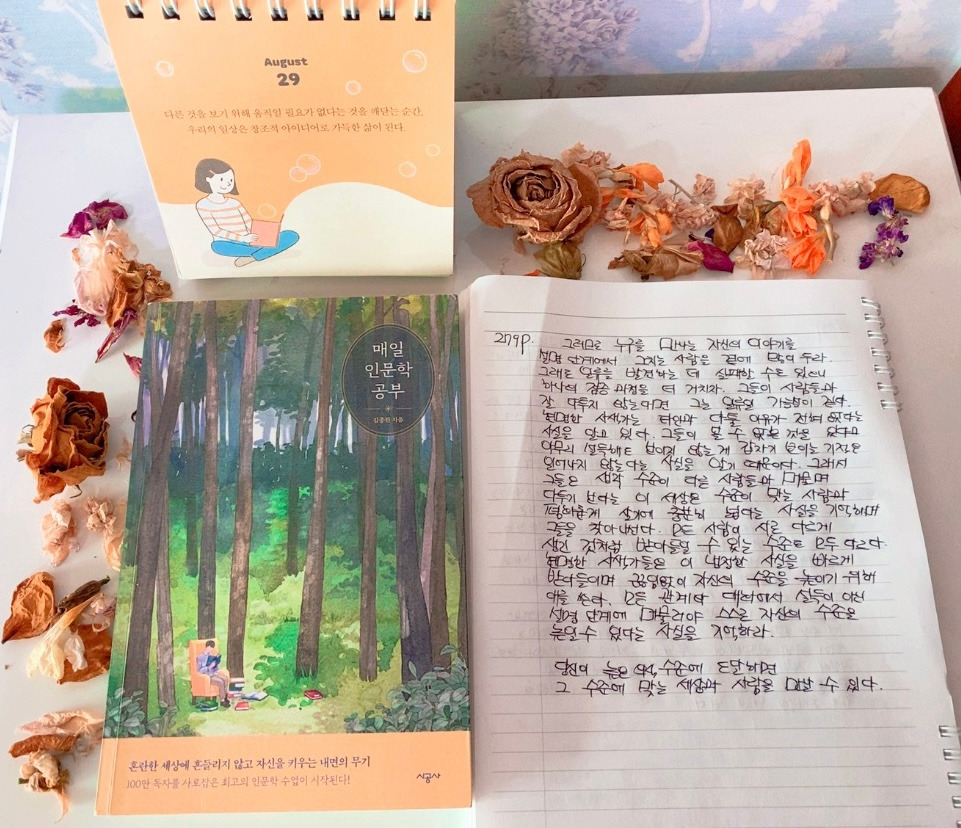 August
29
다른 것을 보기 위해 움직일 필요가 없다는 것을 깨닫는 순간,
우리의 일상은 창조적 아이디어로 가득한 삶이 된다.
매일
인문학
공부
김종원 지음
혼란한 세상에 흔들리지 않고 자신을 키우는 내면의 무기
100만 독자를 사로잡은 최고의 인문학 수업이 시작된다!
시공사
279p.
그러므로 누구를 만나든 자신의 이야기를
설명 단계에서 그치는 사람을 곁에 많이 두라.
그래도 일을 발전하는 데 실패할 수도 있으니
하나의 검증 과정을 더 거치자. 그들이 사람들과
잘 다투지 않는다면 그는 일류일 가능성이 컸다.
현명한 사색가는 타인과 다툴 이유가 전혀 없다는
사실을 알고 있다. 그들이 볼 수 없는 것을 있다고
아무리 설득해도 보이지 않는 게 갑자기 보이는 기적은
일어나지 않는다는 사실을 알기 때문이다. 그래서
그들은 생각 수준이 다른 사람들과 머물며
다투기 보다는 이 세상은 수준이 맞는 사람과
평화롭게 살기에 충분히 넓다는 사실을 기억하며
그들을 찾아나선다. 모든 사람이 서로 다르게
생긴 것처럼 받아들일 수 있는 수준도 모두 다르다.
현명한 사색가들은 이 냉정한 사실을 빠르게
받아들이며 끊임없이 자신의 수준을 높이기 위해
애를 쓴다. 모든 관계와 대화에서 설득이 아닌
설명 단계에 머물러야 스스로 자신의 수준을
높일 수 있다는 사실을 기억하라.
당신이 높은 의식 수준에 도달하면
그 수준에 맞는 세상과 사람을 만날 수 있다.